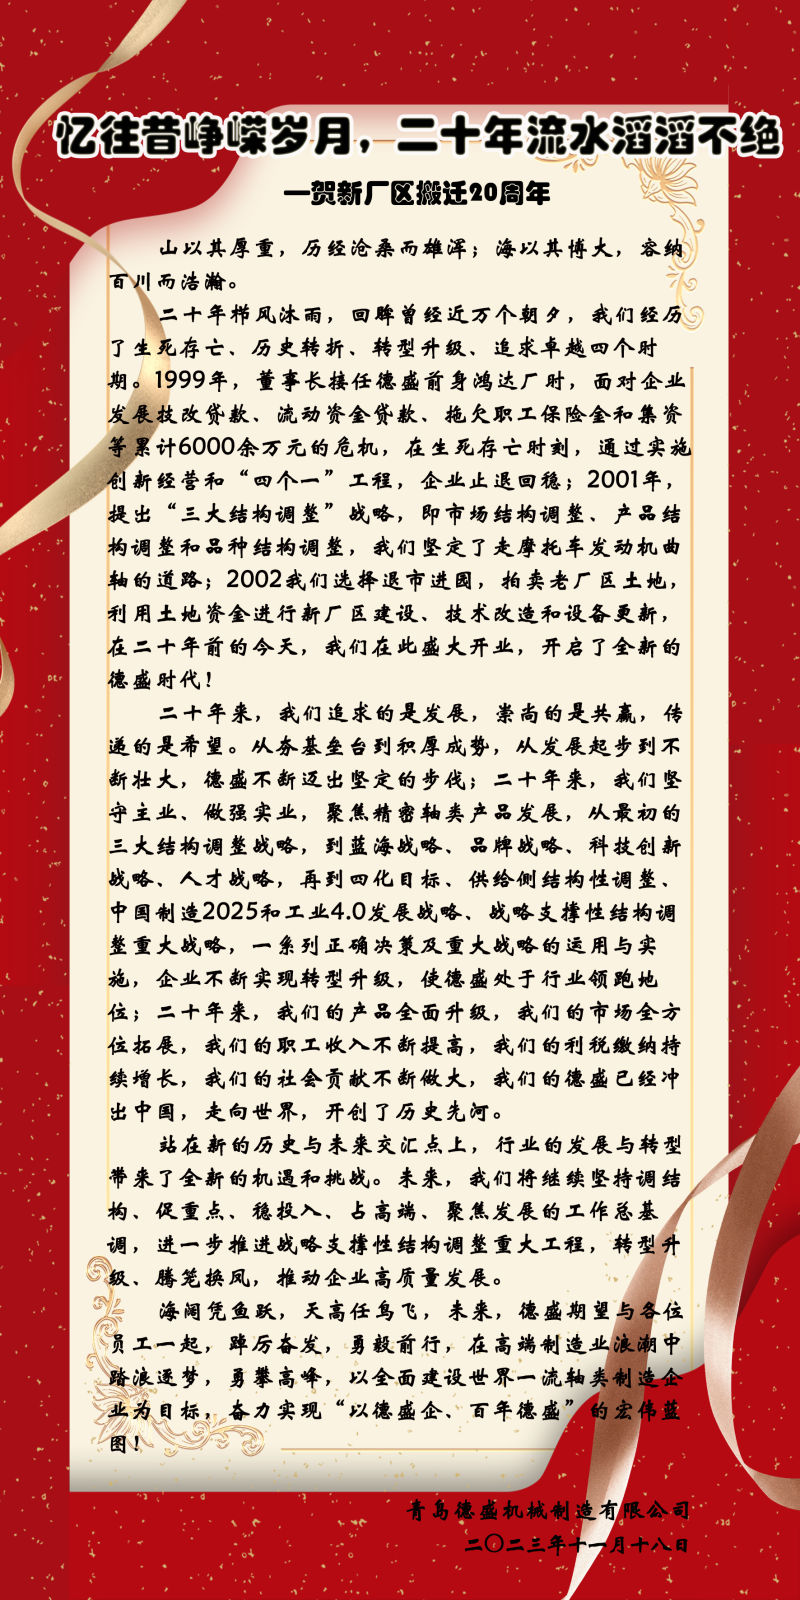 忆往昔峥嵘岁月，二十年流水滔滔不绝
—贺新厂区搬迁20周年
山以其厚重，历经沧桑而雄浑；海以其博大，容纳
百川而浩瀚。
二十年栉风沐雨，回眸曾经近万个朝夕，我们经历
了生死存亡、历史转折、转型升级、追求卓越四个时
期。1999年，董事长接任德盛前身鸿达厂时，面对企业
发展技改贷款、流动资金贷款、拖欠职工保险金和集资
等累计6000余万元的危机，在生死存亡时刻，通过实施
创新经营和“四个一”工程，企业止退回稳；2001年，
提出“三大结构调整”战略，即市场结构调整、产品结
构调整和品种结构调整，我们坚定了走摩托车发动机曲
轴的道路；2002我们选择退市进园，拍卖老厂区土地，
利用土地资金进行新厂区建设、技术改造和设备更新，
在二十年前的今天，我们在此盛大开业，开启了全新的
德盛时代！
二十年来，我们追求的是发展，崇尚的是共赢，传
递的是希望。从夯基垒台到积厚成势，从发展起步到不
断壮大，德盛不断迈出坚定的步伐；二十年来，我们坚
守主业、做强实业，聚焦精密轴类产品发展，从最初的
三大结构调整战略，到蓝海战略、品牌战略、科技创新
战略、人才战略，再到四化目标、供给侧结构性调整、
中国制造2025和工业4.0发展战略、战略支撑性结构调
整重大战略，一系列正确决策及重大战略的运用与实
施，企业不断实现转型升级，使德盛处于行业领跑地
位；二十年来，我们的产品全面升级，我们的市场全方
位拓展，我们的职工收入不断提高，我们的利税缴纳持
续增长，我们的社会贡献不断做大，我们的德盛已经冲
出中国，走向世界，开创了历史先河。
站在新的历史与未来交汇点上，行业的发展与转型
带来了全新的机遇和挑战。未来，我们将继续坚持调结
构、促重点、稳投入、占高端、聚焦发展的工作总基
调，进一步推进战略支撑性结构调整重大工程，转型升
级、腾笼换凤，推动企业高质量发展。
海阔凭鱼跃，天高任鸟飞，未来，德盛期望与各位
员工一起，踔厉奋发，勇毅前行，在高端制造业浪潮中
踏浪逐梦，勇攀高峰，以全面建设世界一流轴类制造企
业为目标，奋力实现“以德盛企、百年德盛”的宏伟蓝
图！
青岛德盛机械制造有限公司
二〇二三年十一月十八日